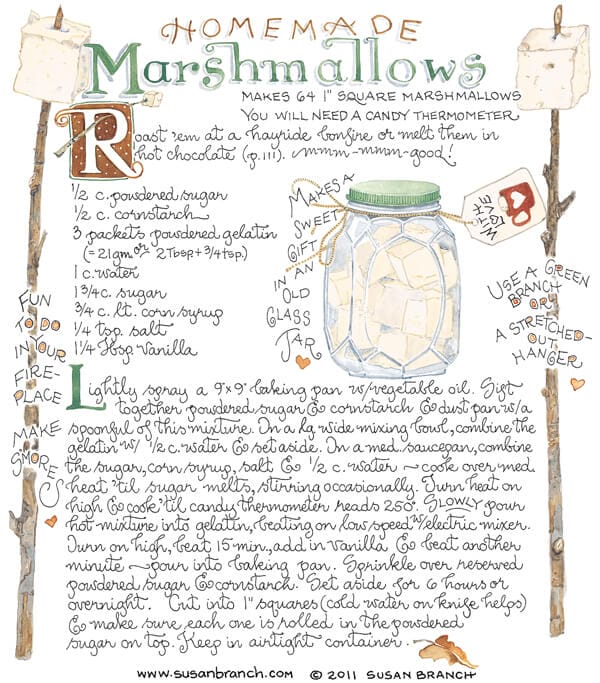 HOMEMADE
Marshmallows
MAKES 64 1" SQUARE MARSHMALLOWS
YOU WILL NEED A CANDY THERMOMETER
Roast 'em at a hayride bonfire or melt them in
hot chocolate (p.111). mmm-mmm-good!
1/2 c. powdered sugar
1/2 c. cornstarch
3 packets powdered gelatin
(= 21gm or 2 Tbsp. + 3/4 tsp.)
1 c. water
1 3/4 c. sugar
3/4 c. lt. corn syrup
1/4 tsp. salt
1 1/4 tbsp. vanilla
MAKES A
SWEET
GIFT
IN AN
OLD
GLASS
JAR
WITH
LOVE
FUN
TO DO
IN YOUR
FIRE-
PLACE
MAKE
S'MORES
USE A GREEN
BRANCH
OR
A STRETCHED-
OUT
HANGER
Lightly spray a 9"x9" baking pan w/vegetable oil. Sift
together powdered sugar & cornstarch & dust pan w/a
spoonful of this mixture. In a lg. wide mixing bowl, combine the
gelatin w/ 1/2 c. water & set aside. In a med. saucepan, combine
the sugar, corn syrup, salt & 1/2 c. water ~ cook over med.
heat 'til sugar melts, stirring occasionally. Turn heat on
high & cook 'til candy thermometer reads 250°. SLOWLY pour
hot mixture into gelatin, beating on low speed w/electric mixer.
Turn on high, beat 15 min., add in vanilla & beat another
minute ~ pour into baking pan. Sprinkle over reserved
powdered sugar & cornstarch. Set aside for 6 hours or
overnight. Cut into 1" squares (cold water on knife helps)
& make sure each one is rolled in the powdered
sugar on top. Keep in airtight container.
www.susanbranch.com © 2011 SUSAN BRANCH